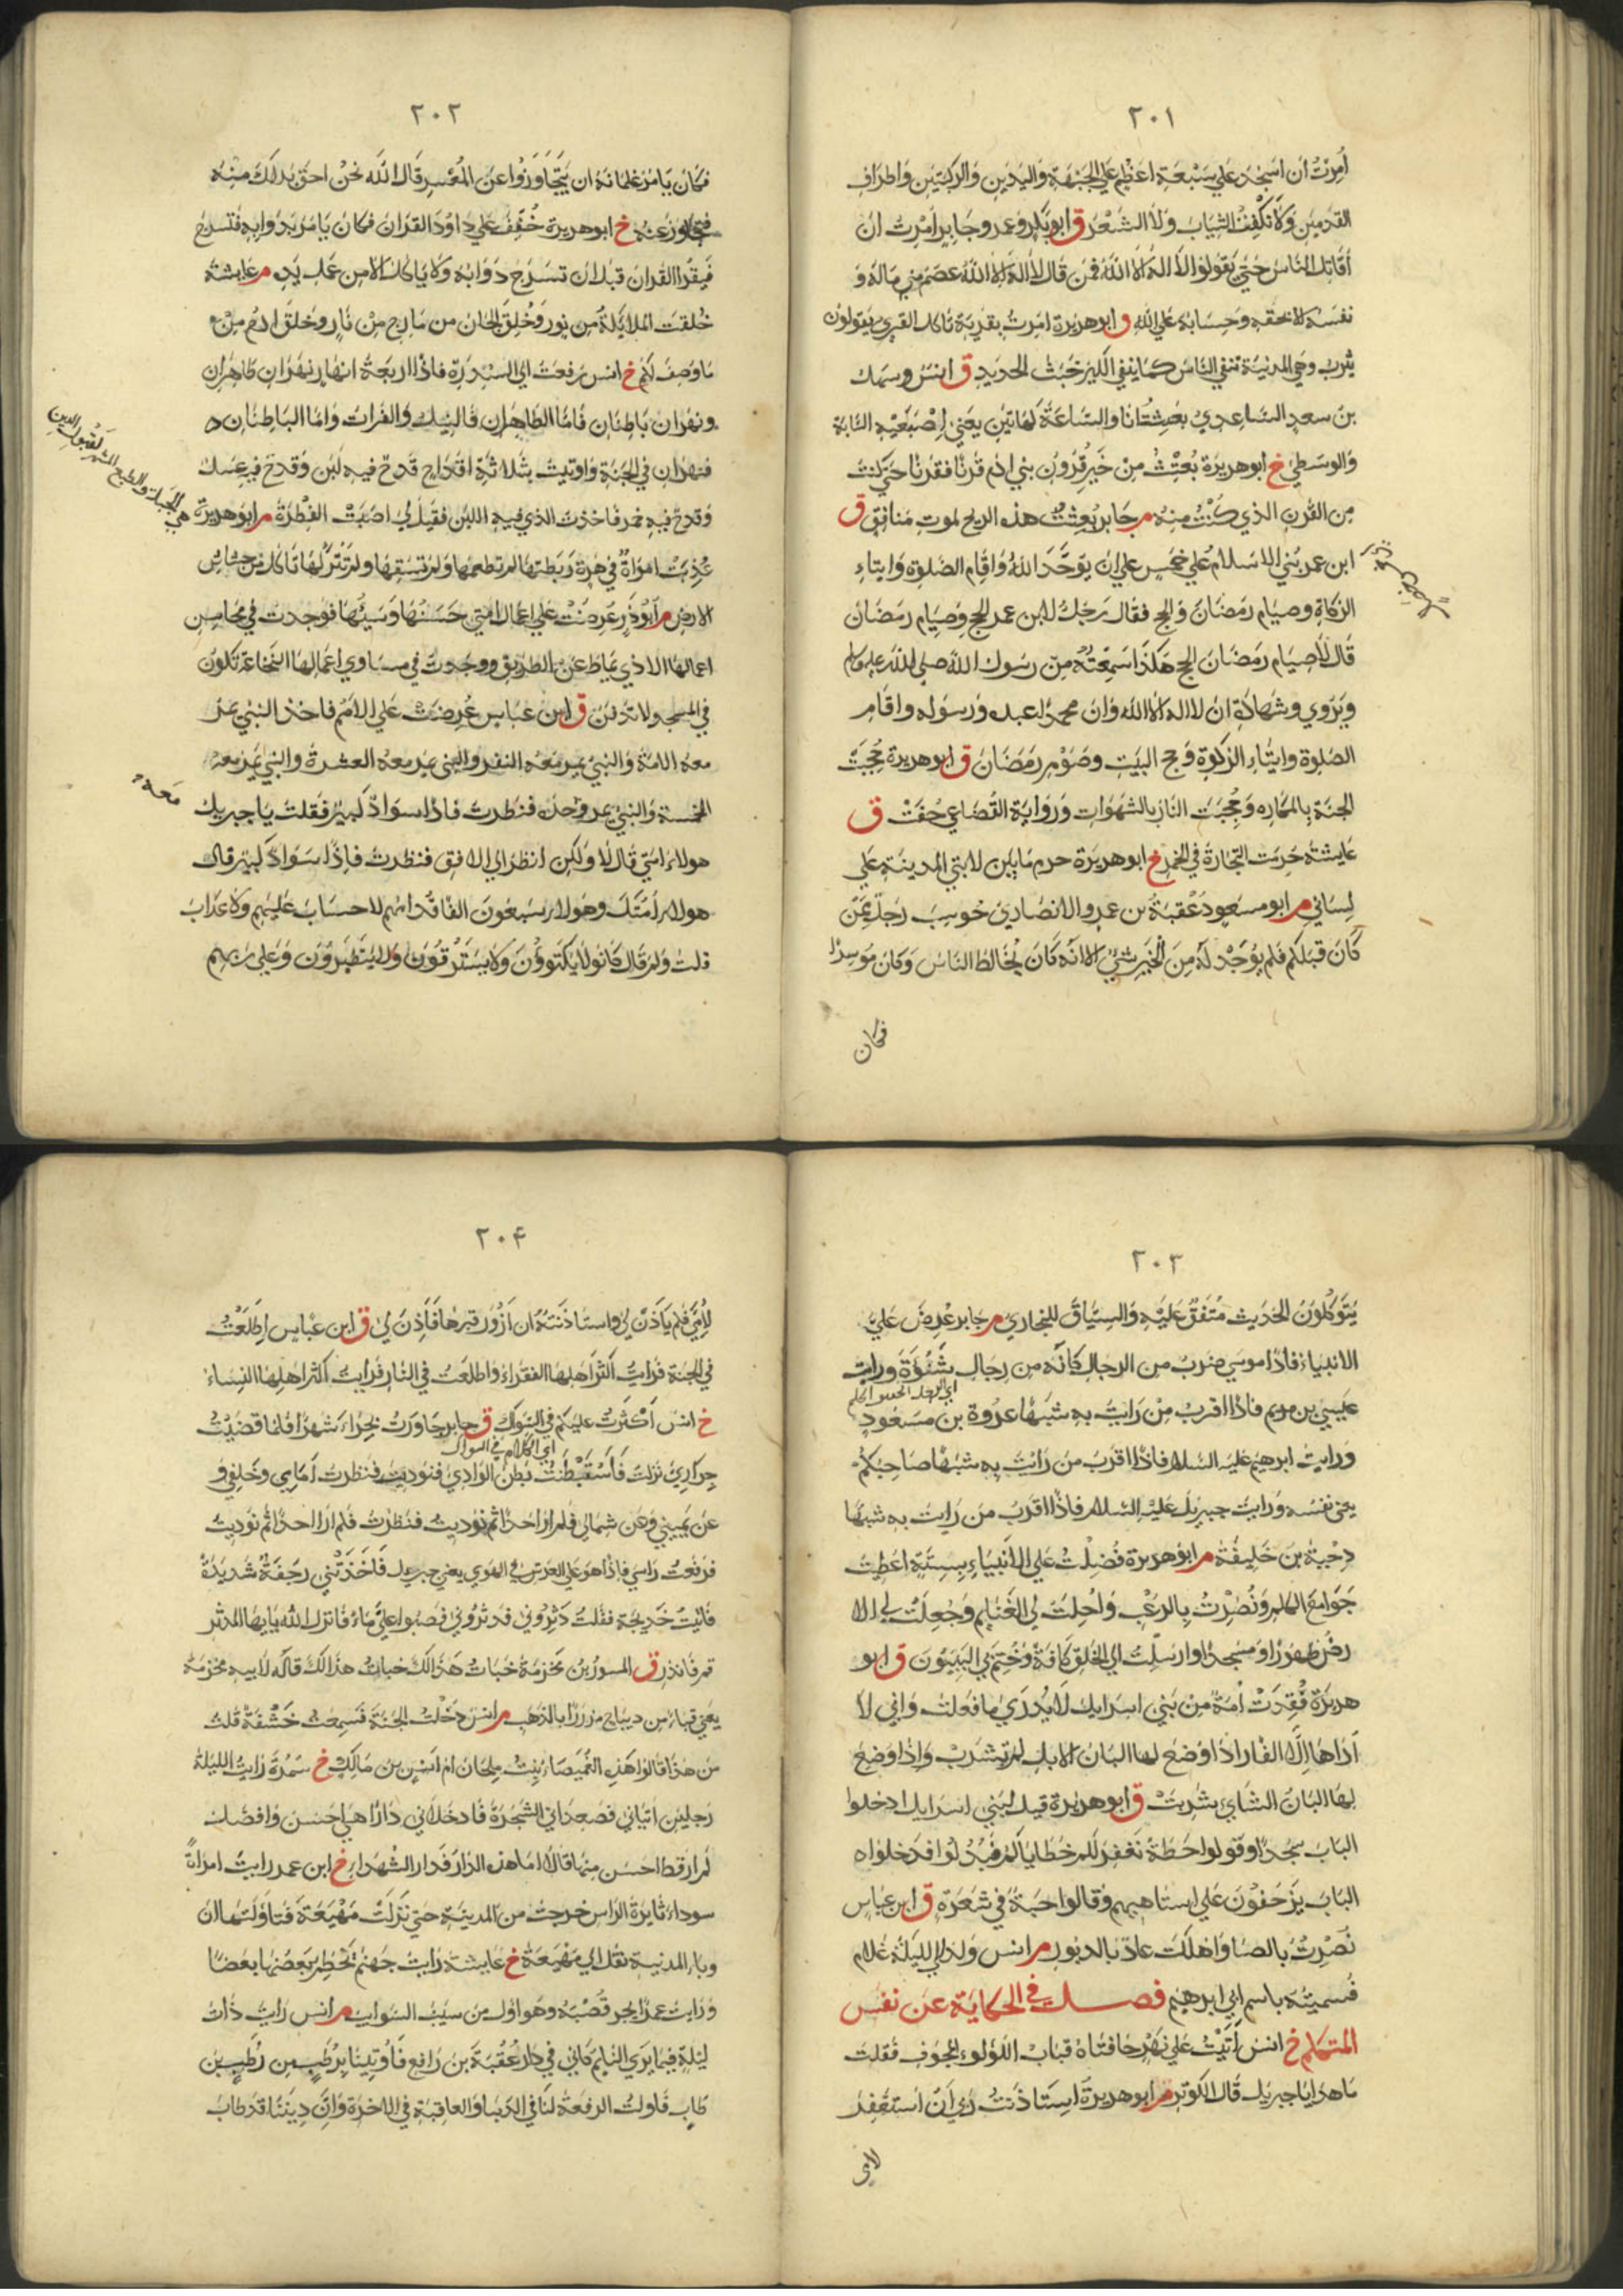 ٢٠١
أُمِرْتُ ان اسجُدَ علي سَبْعَة اعظُمٍ علي الجَبْهَةِ وَاليَدينِ وَالركبتَينِ وَاطرافِ
القدمينِ وَلا نَكْفِتُ الثيابَ وَلا الشعْرَ ق ابو بكرٍ وعمر وجابر أُمِرْتُ ان
أقاتلَ الناسَ حتي يَقولوا لا اله الا اللهُ فمن قال لا اله الا الله عصَم مني مَاله وَ
نفسَه الا بحقه وحسابهُ علي الله ق ابو هريرة امرتُ بقرية تاكل القري يقولون
يثربُ وهي المدينة تنفي الناسَ كما ينفي الكيرُ خبثَ الحديدِ ق انس وسهل
بن سعدٍ الساعِدي بعثتُ انا والساعَةُ كهاتين يعني اِصْبَعَيهِ السبابة
وَالوسطي خ ابو هريرة بُعِثْتُ من خَير قرُونِ بني ادم قرنًا فقرنًا حتي كنتُ
مِن القرنِ الذي كنتُ منه م جابر بُعثت هذه الريح لموت منافقٍ ق
ابن عمر بُني الاسلامُ علي خمسٍ علي ان يوَحَّدَ اللهُ وَاقام الصلوة وَايتاءِ
الزكاة وصيام رمضانَ وَالحج فقال رَجلٌ لابن عمر الحج وصيام رمضان
قال لا صيام رمضان والحج هَكذا سَمِعْتُهُ من رسول الله صلي الله عليه وسلم
ويَرْوي وشهادة ان لا اله الا الله وان محمدًا عبده ورسوله واقام
الصلوة وايتاءِ الزكوة وحج البيت وصوم رمضان ق ابو هريرة حُجبت
الجنة بالمكاره وَحُجبَت النار بالشهوات وَرواية القُضاعي حُفَّتْ ق
عايشة حُرمت التجارة في الخمر خ ابو هريرة حرم مابين لابتي المدينة علي
لِساني م ابو مسعود عُقبَة بن عمرو الانصاري حُوسِبَ رَجل ممّن
كَان قبلكم فلم يُوْجَدْ لَه مِنَ الخير شَيء الا انه كَان يُخالط الناسَ وَكانَ مُوسِرًا
فكان
٢٠٢
فكان يَامُر غلمانهُ ان يَتَجَاوَزُوا عن المُعْسِرِ قال الله نحن احق بذلك منه
فتجاوز عنه خ ابو هريرة خُفِّفَ علي داودَ القران فكان يَامر بدوابه فتسرج
فيقرا القران قبل ان تسرَج دوابه ولا ياكل الا من عمل يدهِ م عايشة
خُلقت الملايكة من نور وَخُلِقَ الجان من مارج من نارٍ وَخلق ادم مِمَّا
مَا وصفَ لكم خ انس رفعت الي السِّدْرَة فاذا اربعة انهار نهران ظاهران
ونهران باطنان فاما الظاهران فالنيل والفرات وَاما الباطنان
فنهران في الجنة وَاوتيت بثلاثة اقداح قدح فيه لبن وَقدح فيه عسل
وَقدح فيه خمر فاخذت الذي فيه اللبن فقيل لي اصبت الفِطْرة م ابو هريرة
هي الجبلة والطبع المتهيئ لقبول الدين
عُذِّبَتْ امراةٌ في هِرة رَبطتها لم تطعمها وَلم تَسْقِها ولم تتركها تاكل من خشاش
الارض م ابو ذر عُرِضَتْ علي اعمال امتي حَسَنُها وَسَيئُها فوجدت في محاسن
اعمالها الاذي يماط عن الطريق ووجدت في مساوي اعمالها النخاعة تكون
في المسجد ولا تدفن ق ابن عباس عُرِضَتْ علي الامم فاخذ النبي يمر
معه الامة وَالنبي يمر معه النفر والنبي يمر معه العشرة والنبي يمر معه
معه
الخمسة وَالنبي يمر وحده فنظرت فاذا سوادٌ كبير فقلت يا جبريل
هولاء امتي قال لا ولكن انظر الي الافق فنظرت فاذا سَوَاد كبير قال
هولاء امتك وهولاء سَبعون الفا قدامهم لا حسابَ عليهم وَلا عَذاب
قلت ولم قال كانوا لا يكتوون وَلا يسترقون ولا يتطيرون وَعلي ربهم
٢٠٣
يَتَوَكلونُ الحديث مُتفقٌ عَليه وَالسياقُ للبخاري م جابر عُرِضَ عَليّ
الانبياء فاذا موسي ضرب من الرجال كانه من رجال شنوءة ورايت
عيسي بن مريم فاذا اقرب من رايت به شبهًا عروة بن مسعود
ورايت ابرهيم عليه السلام فاذا اقرب من رايت به شبهًا صاحبكم
يعني نفسه ورايت جبريل عليه السلام فاذا اقرب من رايت به شبهًا
دِحْيَةُ بن خليفة م ابو هريرة فُضِّلْتُ علي الانبياء بِسِتَّةٍ اعطيت
جَوَامع الكلم وَنُصِرْتُ بِالرعْبِ وَاُحِلت لي الغنايم وَجُعِلت لي الا
رضُ طهورًا ومسجدًا وارسلت الي الخلق كافة وَختم بي النبيون ق ابو
هريرة فُقِدَتْ أُمة من بني اسرايل لا يُدري ما فعلت واني لا
اُراها الا الفار اذا وُضعَ لها البان الابل لم تشرب وَاذا وضعَ
لها البان الشاء شربت ق ابو هريرة قيل لبني اسرايل ادخلوا
الباب سجدًا وقولوا حطة نغفر لكم خطاياكم فبدلوا فدخلوا
الباب يزحفون علي استاههم وَقالوا حبة في شعرة ق ابن عباس
نُصِرْتُ بالصبا وَاهلكت عاد بالدبور م انس ولد لي الليلة غلام
فسميته باسم ابي ابرهيم فصل في الحكاية عن نفس
المتكلم خ انس أتَيْتُ علي نهر حافتاه قباب اللؤلوء المجوف فقلت
ما هذا يا جبريل قال الكوثر م ابو هريرة استاذنت ربي ان استغفر
لامي
٢٠٤
لِأُمِّي فلم يَأذن لي واستاذنته ان ازُور قبرها فَأَذِنَ لي ق ابن عباس اِطلعت
في الجنة فرايت اكثر اهلها الفقراء واطلعت في النار فرايت اكثر اهلها النساء
خ انس اَكثرتُ عليكم في السِّواك ق جابر جاورت بحراء شهرًا فلما قضيت
اي الكلام في السواك
جواري نزلت فَاستبْطَنْتُ بطن الوادي فنوديت فنظرت امامي وخلفي وَ
عن يميني وعن شمالي فلم ار احدًا ثم نوديت فنظرت فلم ار احدًا ثم نوديت
فرفعت راسي فاذا هو علي العرش في الهوي يعني جبريل فَاخذتني رجفة شديدة
فاتيت خديجة فقلت دثروني فدثروني فصبوا عليَّ ماء فانزل الله يا يها المدثر
قم فانذر ق المسور بن مخرمة خبات هذا لك خبات هذا لك قاله لابيه مخرمة
يعني قباء من ديباج مزررًا بالذهب م انس دخلت الجنة فسمعت خشفة قلت
من هذا قالوا هذه الغميصاء بنت ملحان ام انس بن مالك خ سمرة رايت الليلة
رجلين اتياني فصعدا بي الشجرة فادخلاني دارًا هي احسن وافضل
لم ار قط احسن منها قالا اما هذه الدار فدار الشهداء خ ابن عمر رايت امراة
سوداء ثايرة الراس خرجت من المدينة حتي نزلت مَهْيَعَة فتاولتها ان
وباء المدينة نقل الي مهيعة خ عايشة رايت جهنم تحطم بعضها بعضًا
وَرايت عمرًا يجر قُصْبَه وهو اول من سيب السوايب م انس رايت ذات
ليلة فيما يري النايم كاني في دار عُقْبَة بن رافع فاوتينا برطب من رطب بن
طاب فاولت الرفعة لنا في الدنيا والعاقبة في الاخرة وَان ديننا قد طاب